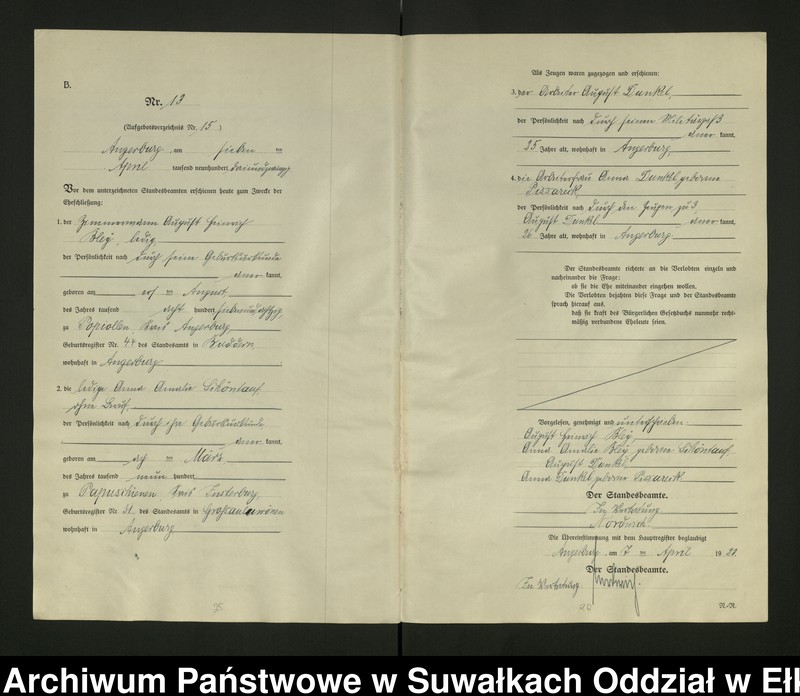 B.
Nr. 13
(Aufgebotsverzeichnis Nr. 15)
Angerburg, am sieben ten
April tausend neunhundert dreiundzwanzig
Vor dem unterzeichneten Standesbeamten erschienen heute zum Zwecke der
Eheschließung:
1. der Zimmermann August Heinrich
Bley, ledig,
der Persönlichkeit nach durch seine Geburtsurkunde
aner kannt,
geboren am elf ten August
des Jahres tausend acht hundert siebenundachtzig
zu Popiollen, Kreis Angerburg,
Geburtsregister Nr. 44 des Standesamts in Buddern,
wohnhaft in Angerburg ;
2. die ledige Anna Amalie Schöntauf,
ohne Beruf,
der Persönlichkeit nach durch ihre Geburtsurkunde
aner kannt,
geboren am ten März
des Jahres tausend neun hundert
zu Kreis Insterburg,
Geburtsregister Nr. 31 des Standesamts in
wohnhaft in Angerburg
Als Zeugen waren zugezogen und erschienen:
3. der Arbeiter August Dunkel,
der Persönlichkeit nach durch seinen Militärpaß
aner kannt,
25 Jahre alt, wohnhaft in Angerburg,
4. die Arbeiterfrau Anna Dunkel geborene
der Persönlichkeit nach durch den Zeugen zu 3,
August Dunkel aner kannt,
26 Jahre alt, wohnhaft in Angerburg.
Der Standesbeamte richtete an die Verlobten einzeln und
nacheinander die Frage:
ob sie die Ehe miteinander eingehen wollen.
Die Verlobten bejahten diese Frage und der Standesbeamte
sprach hierauf aus,
daß sie kraft des Bürgerlichen Gesetzbuchs nunmehr recht-
mäßig verbundene Eheleute seien.
Vorgelesen, genehmigt und unterschrieben.
August Heinrich Bley,
Anna Amalie Bley geborene Schöntauf,
August Dunkel,
Anna Dunkel geborene
Der Standesbeamte.
In Vertretung
Die Übereinstimmung mit dem Hauptregister beglaubigt
Angerburg, am 7 ten April 19 23.
Der Standesbeamte.
In Vertretung
N.-R.
Archiwum Państwowe w Suwałkach Oddział w Eł